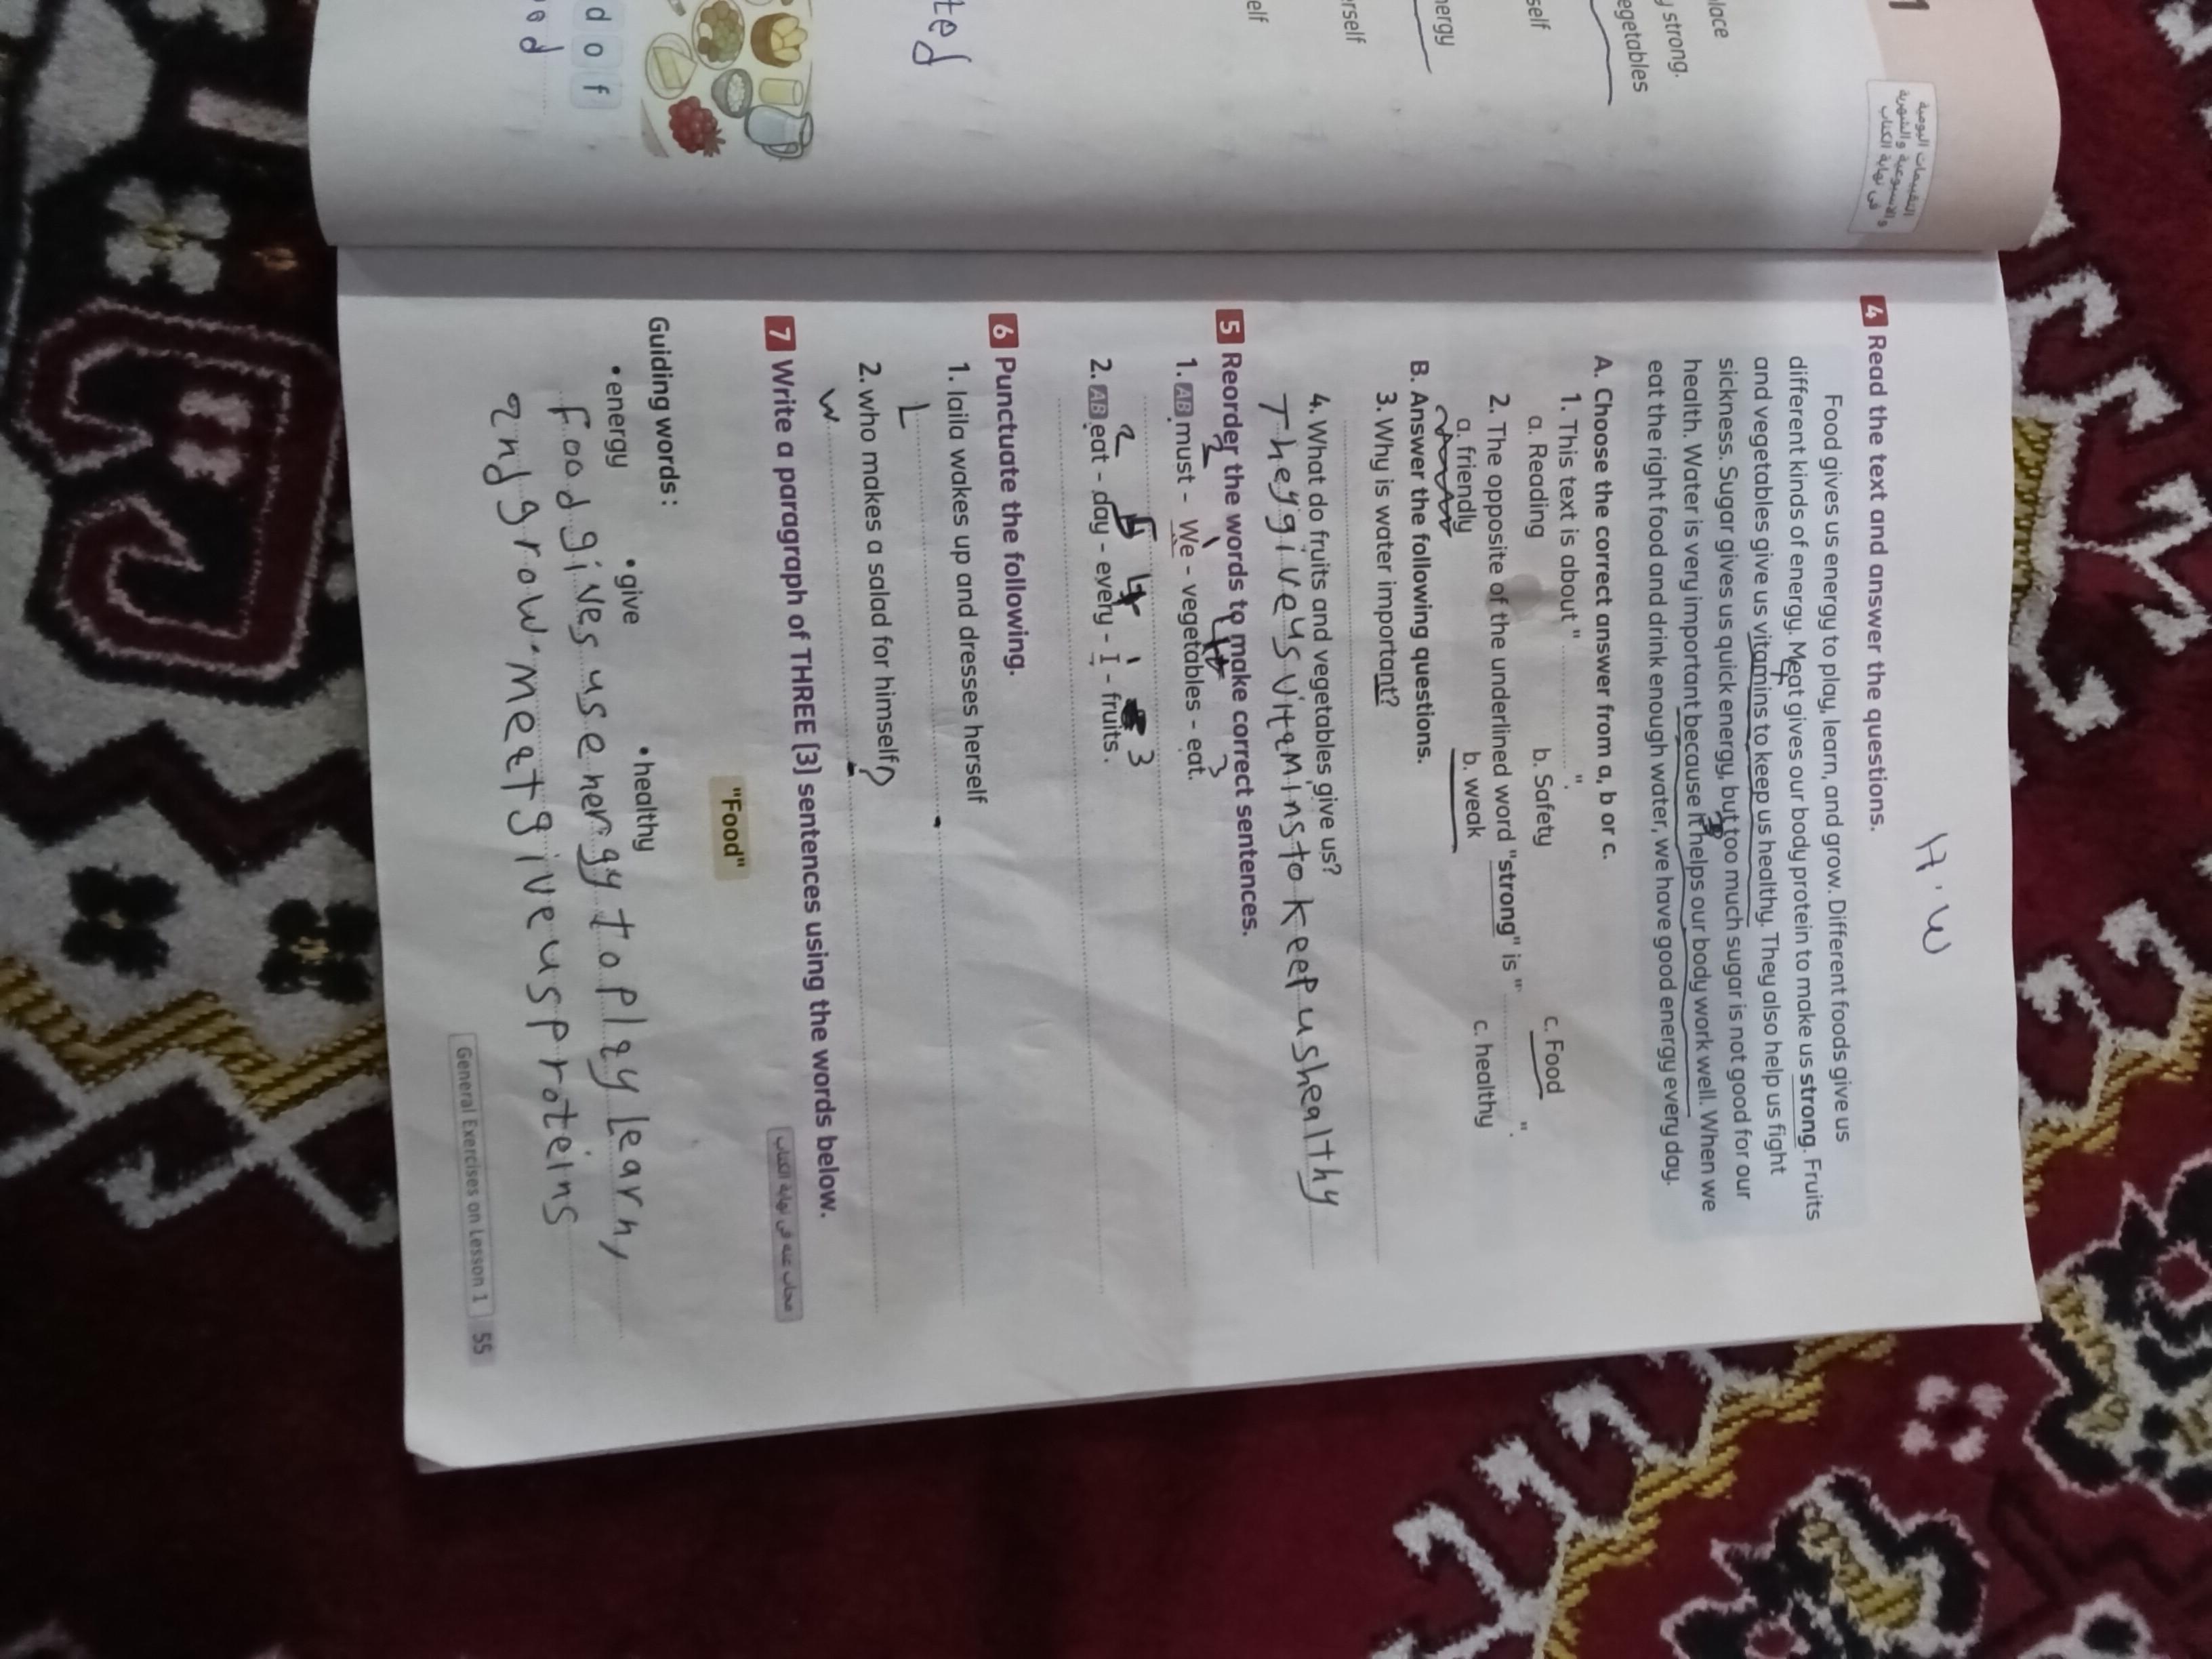 1
التقييمات اليومية
والأسبوعية والشهرية
في نهاية الكتاب
lace
y strong.
egetables
self
nergy
erself
elf
ted
d o f
od
H.W
4 Read the text and answer the questions.
Food gives us energy to play, learn, and grow. Different foods give us
different kinds of energy. Meat gives our body protein to make us strong. Fruits
and vegetables give us vitamins to keep us healthy. They also help us fight
sickness. Sugar gives us quick energy, but too much sugar is not good for our
health. Water is very important because it helps our body work well. When we
eat the right food and drink enough water, we have good energy every day.
A. Choose the correct answer from a, b or c.
1. This text is about "..............".
a. Reading b. Safety c. Food
2. The opposite of the underlined word "strong" is "..............".
a. friendly b. weak c. healthy
B. Answer the following questions.
3. Why is water important?
4. What do fruits and vegetables give us?
They give us vitamins to keep us healthy
5 Reorder the words to make correct sentences.
2 1 4 3
1. AB must - We - vegetables - eat.
2 5 4 1 3
2. AB eat - day - every - I - fruits.
6 Punctuate the following.
1. laila wakes up and dresses herself .
L
2. who makes a salad for himself?
W
7 Write a paragraph of THREE (3) sentences using the words below.
مجاب عنه في نهاية الكتاب
"Food"
Guiding words :
• energy • give • healthy
Food gives us energy to play learn,
and grow. meat give us proteins
General Exercises on Lesson 1 55